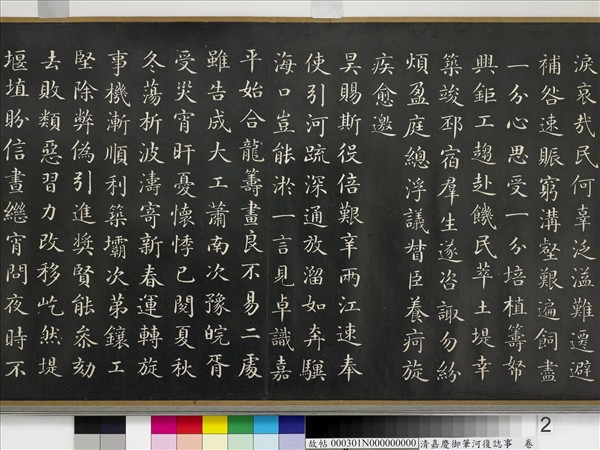 淚哀哉民何辜泛溢難遷避
補咎速賑窮溝壑艱遍飼盡
一分心思受一分培植籌帑
興鉅工趨赴饑民萃土堤幸
築竣邳宿羣生遂咨諏勿紛
煩盈庭總浮議督臣養疴旋
疾愈邀
昊賜斯役倍艱辛兩江速奉
使引河疏深通放溜如奔驥
海口豈能淤一言見卓識嘉
平始合龍籌畫良不易二處
雖告成大工蕭南次豫皖胥
受災宵旰憂懷悸已閱夏秋
冬蕩析波濤寄新春運轉旋
事機漸順利築壩次第鑲工
堅除弊偽引進獎賢能參劾
去敗類惡習力改移屹然堤
堰埴盼信畫繼宵問夜時不
故帖 000301N000000000 清嘉慶御筆河復誌事 卷
2